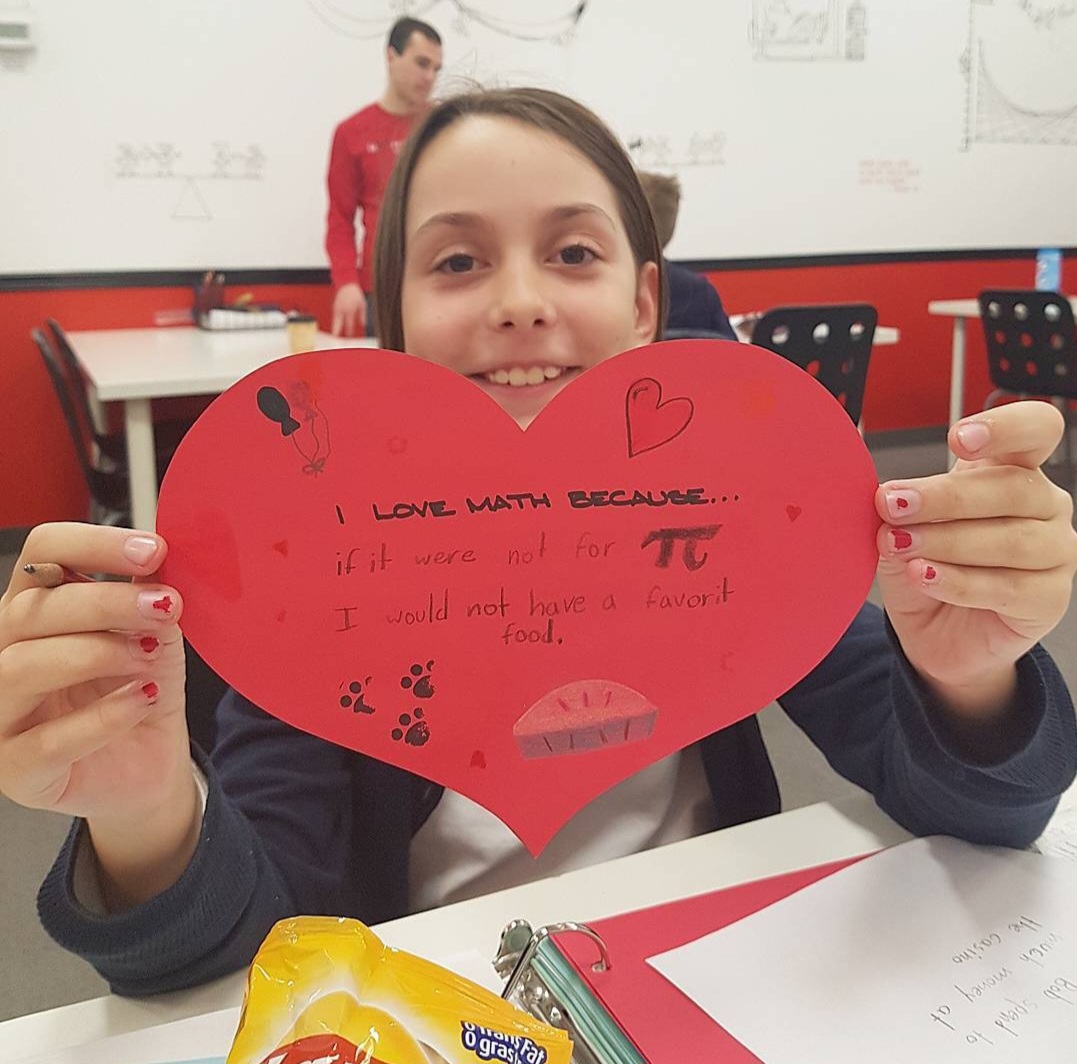 I LOVE MATH BECAUSE...
if it were not for π
I would not have a favorit
food.
0 Trans Fat
0 gras
Bob spend to
much money at
the casino